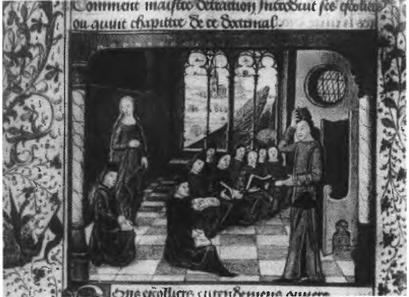 Comment maistre detraction introduit ses escoliers
ou quint chapittre de ce doctrinal.
escolliers